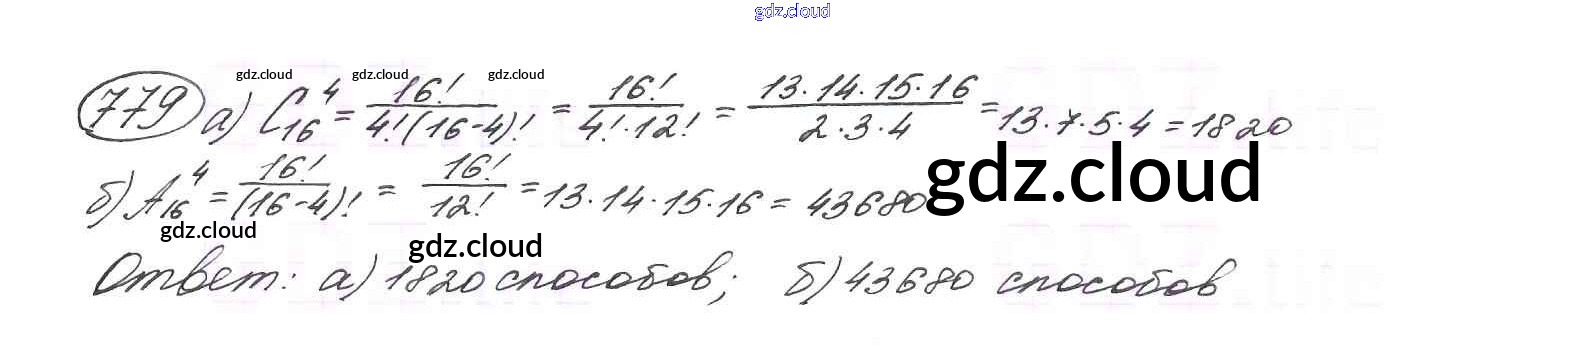 gdz.cloud
gdz.cloud gdz.cloud gdz.cloud
779 а) C₁₆⁴ = 16!/(4!(16-4)!) = 16!/(4!·12!) = (13·14·15·16)/(2·3·4) = 13·7·5·4 = 1820
gdz.cloud
б) A₁₆⁴ = 16!/(16-4)! = 16!/12! = 13·14·15·16 = 43680
gdz.cloud gdz.cloud
Ответ: а) 1820 способов; б) 43680 способов